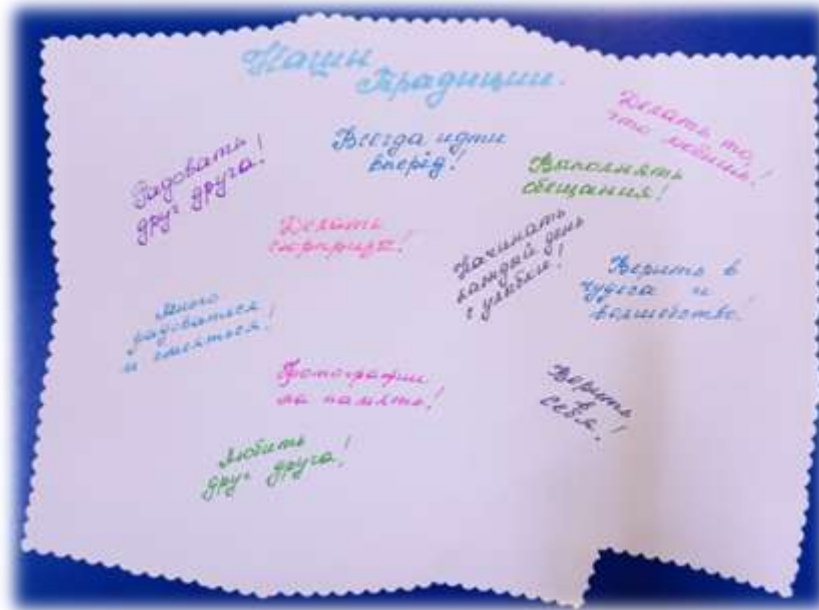 Наши
Традиции.
Делать то,
что любишь!
Всегда идти
вперёд!
Радовать
друг друга!
Выполнять
обещания!
Делать
сюрпризы!
Начинать
каждый день
с улыбки!
Верить в
чудеса и
волшебство!
Много
радоваться
и смеяться!
Фотографии
на память!
Верить
в
себя!
Любить
друг друга!